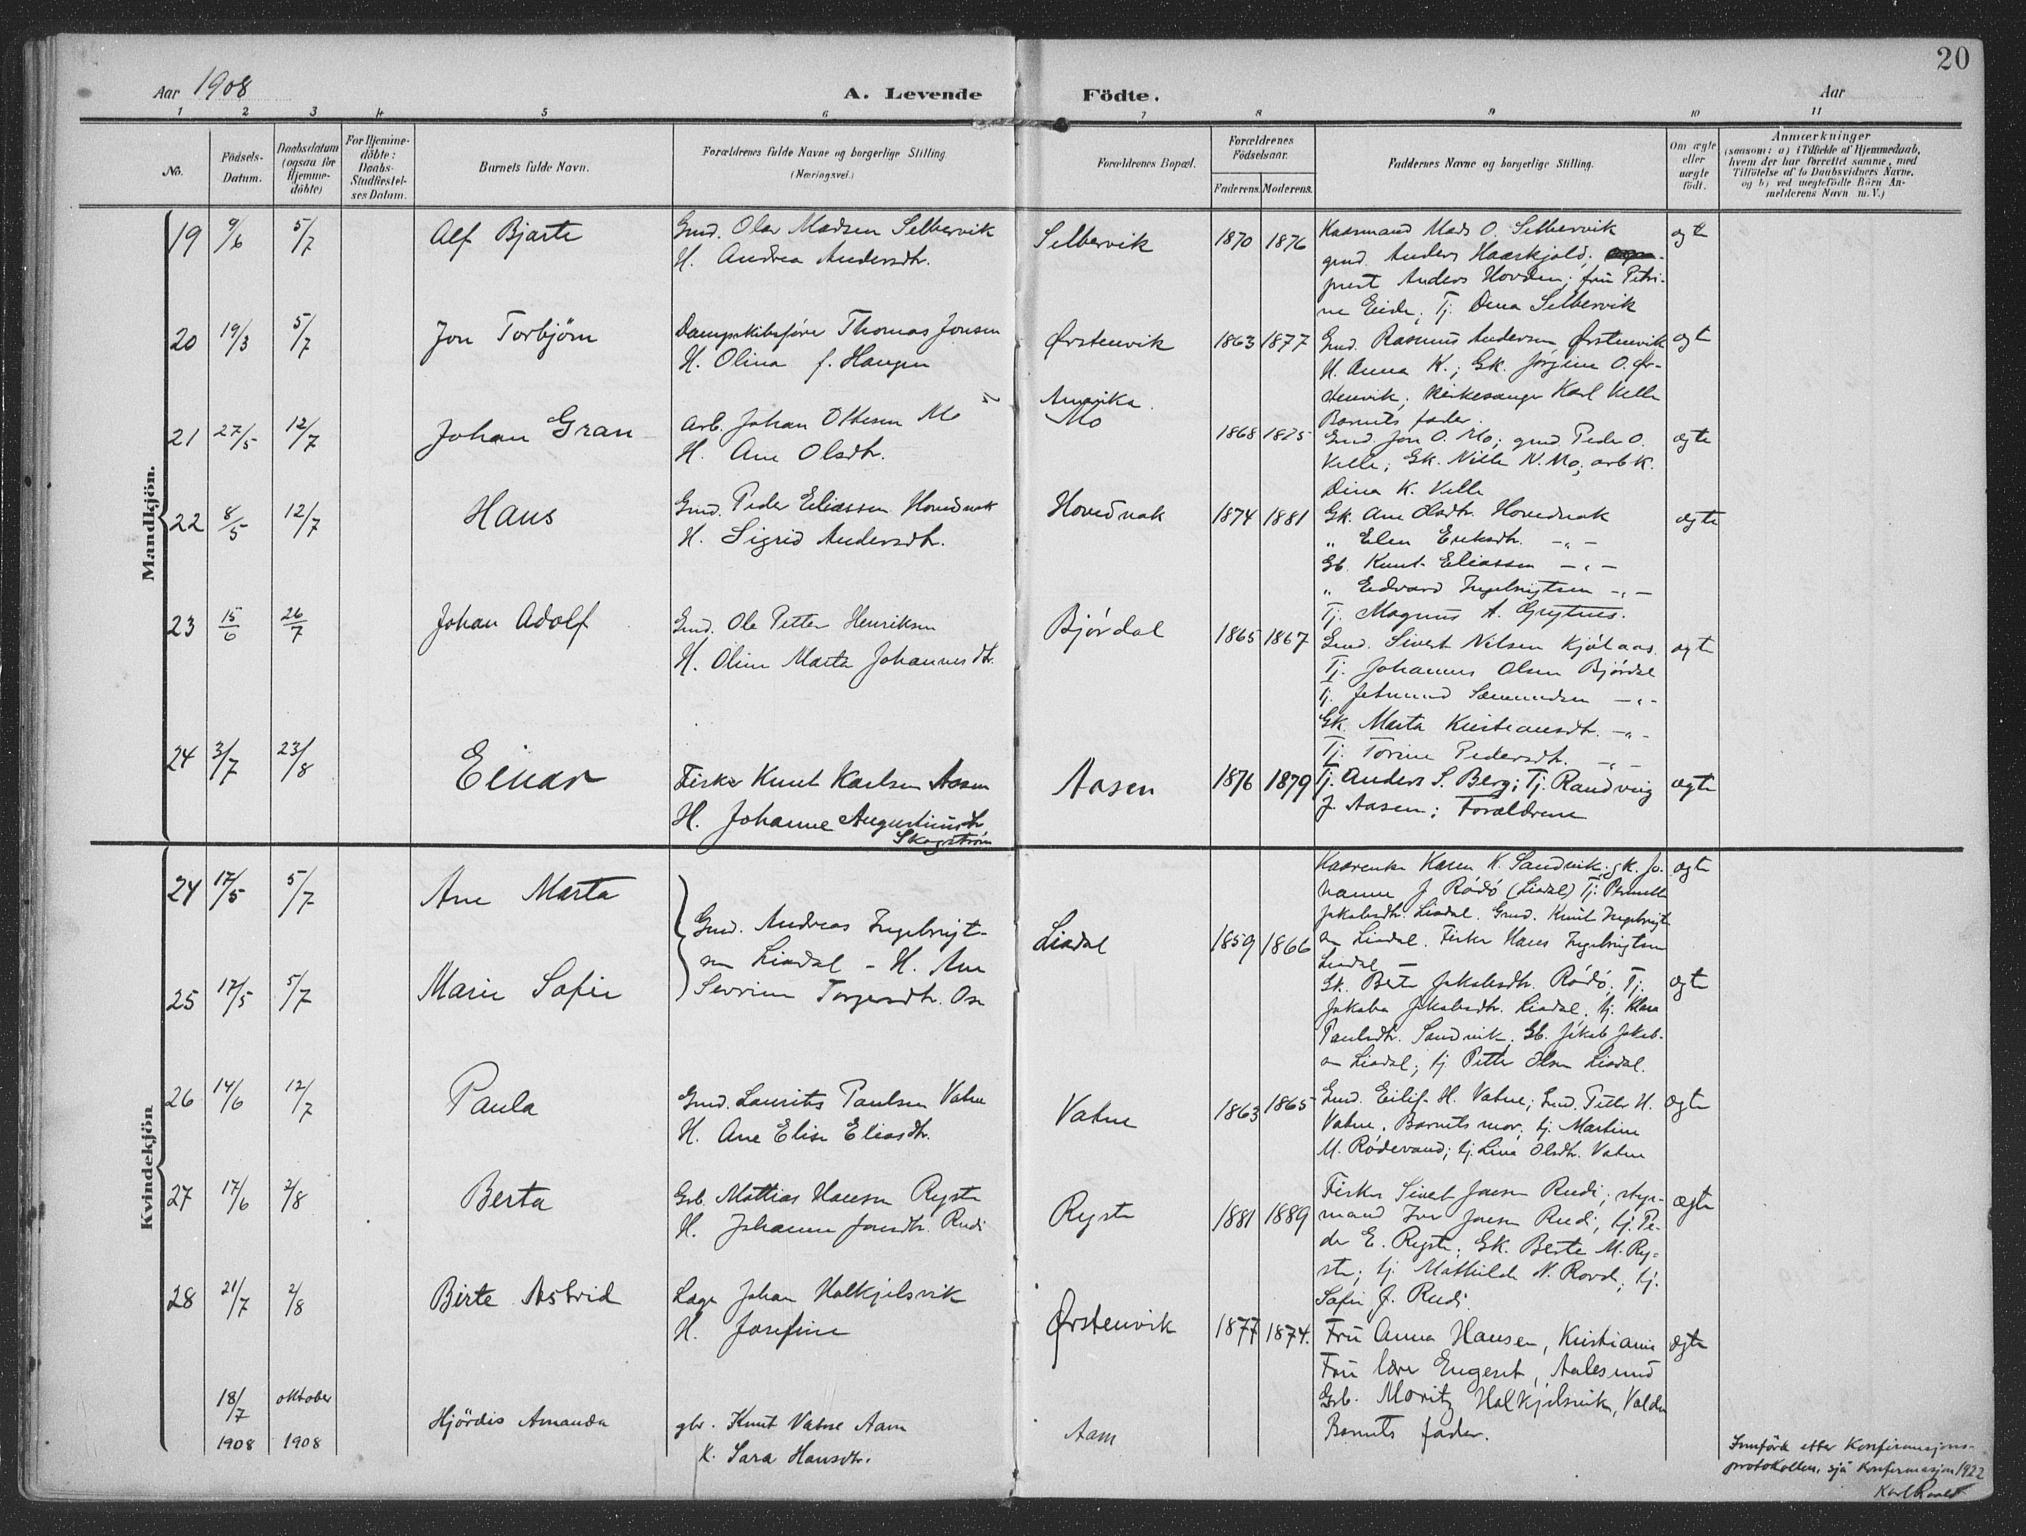 20
Aar 1908
A. Levende Födte.
Aar
1 2 3 4 5 6 7 8 9 10 11
No.
Födsels-
Datum.
Daabsdatum
(ogsaa för
Hjemme-
döbte)
For Hjemme-
döbte:
Daabs-
Stadfæstel-
ses Datum.
Barnets fulde Navn.
Forældrenes fulde Navne og borgerlige Stilling
(Næringsvei.)
Forældrenes Bopæl.
Forældrenes
Födselsaar.
Faderens. Moderens.
Faddernes Navne og borgerlige Stilling.
Om ægte
eller
uægte
födt.
Anmærkninger
(saasom: a) i Tilfælde af Hjemmedaab,
hvem der har forrettet samme, med
Tilföielse af to Daabsvidners Navne,
og b) ved uægtefödte Börn An-
melderens Navn m. V.)
Mandkjön.
19 9/6 5/7 Alf Bjarte
Gmd. Olav Madsen Selbervik
H. Andrea Andersdtr.
Selbervik 1870 1876
Kaarmand Mads O. Selbervik
gmd. Anders Haaskjold;
prest Anders Hovden; frü Petri-
ne Eide; Tj. Dina Selbervik
ægte
20 19/3 5/7 Jon Torbjørn
Dampskibsfører Thomas Jonsen
H. Olina f. Haugen
Ørstenvik 1863 1877
Gmd. Rasmus Andersen Ørstenvik
H. Anna K.; Gk. Jørgine O. Ør-
stenvik; Kirkesanger Karl Velle
Barnets fader.
ægte
21 27/5 12/7 Johan Gran
Arb. Johan Ottesen Mo
H. Ane Olsdtr.
Amerika.
Mo
1868 1875
Gmd. Jon O. Mo; gmd. Peder O.
Velle; Gk. Nille N. Mo; arb.k.
Dina K. Velle
ægte
22 8/5 12/7 Hans
Gmd. Peder Eliassen Hovednak
H. Sigrid Andersdtr.
Hovednak 1874 1881
Gk. Ane Olsdtr. Hovednak
" Elen Eriksdtr. -"-
Gb. Knut Eliassen -"-
" Edvard Ingebrigtsen -"-
Tj. Magnus A. Grytnes.
ægte
23 15/6 26/7 Johan Adolf
Gmd. Ole Petter Henriksen
H. Oline Marta Johannesdtr.
Bjørdal 1865 1867
Gmd. Sivert Nilsen Kjølaas.
Tj. Johannes Olsen Bjørdal
Tj. Jetmund Sæmundsen -"-
Gk. Marta Kristiansdtr. -"-
Tj. Torine Pedersdtr. -"-
ægte
24 3/7 23/8 Einar
Fisker Knut Karlsen Aasen
H. Johanne Augustinusdtr
Skogstrøm
Aasen 1876 1879
Tj. Anders S. Berg; Tj. Randveig
J. Aasen; Forældrene
ægte
Kvindekjön
24 17/5 5/7 Ane Marta
Gmd. Andreas Ingebrigt-
sen Liadal - H. Ane
Severine Torgersdtr. Ose
Liadal 1859 1866
Kaarenke Karen K. Sandvik; gk. Jo-
hanne J Rödö (Liadal) Tj. Pernelle
Jakobsdtr. Liadal. Gmd. Knut Ingebrigt-
sen Liadal. Fisker Hans Ingebrigtsen
Liadal -
ægte
25 17/5 5/7 Marie Sofie
Gk. Berte Jakobsdtr. Rödö; Tj.
Jakoba Jakobsdtr. Liadal, tj. Klara
Paulsdtr. Sandvik, Gb. Jakob Jakob-
sen Liadal; tj Petter Olsen Liadal.
ægte
26 14/6 12/7 Paula
Gmd. Laurits Paulsen Vatne
H. Ane Elise Eliasdtr.
Vatne 1863 1865
Gmd. Eilif H. Vatne; Gmd. Petter H.
Vatne, Barnets mor; tj. Martine
M. Rødevand; tj. Lina Olsdtr. Vatne
ægte
27 17/6 2/8 Berta
Gb. Mattias Hansen Ryste
H. Johanne Jonsdtr. Rudi
Ryste 1881 1889
Fisker Sivert Jonsen Rudi; styr-
mand Iver Jonsen Rudi; tj. Pe-
der E. Ryste; Gk. Berte M. Ry-
ste; tj Mathilde N. Rovd; tj.
Sofie J. Rudi.
ægte
28 21/7 2/8 Birte Astrid
Læge Johan Halkjelsvik
H. Josefine
Ørstenvik 1877 1874.
Frü Anna Hansen, Kristiania
Frü Engeset, Aalesund
Gb. Moritz Halkjelsvik, Volden
Barnets fader.
ægte
18/7 1908 oktober 1908 Hjördis Amanda
gbr. Knut Vatne Aam
K. Sara Hansdtr.
Aam
Innförd etter Konfirmasjons-
protokollen, sjå Konfirmasjon 1922